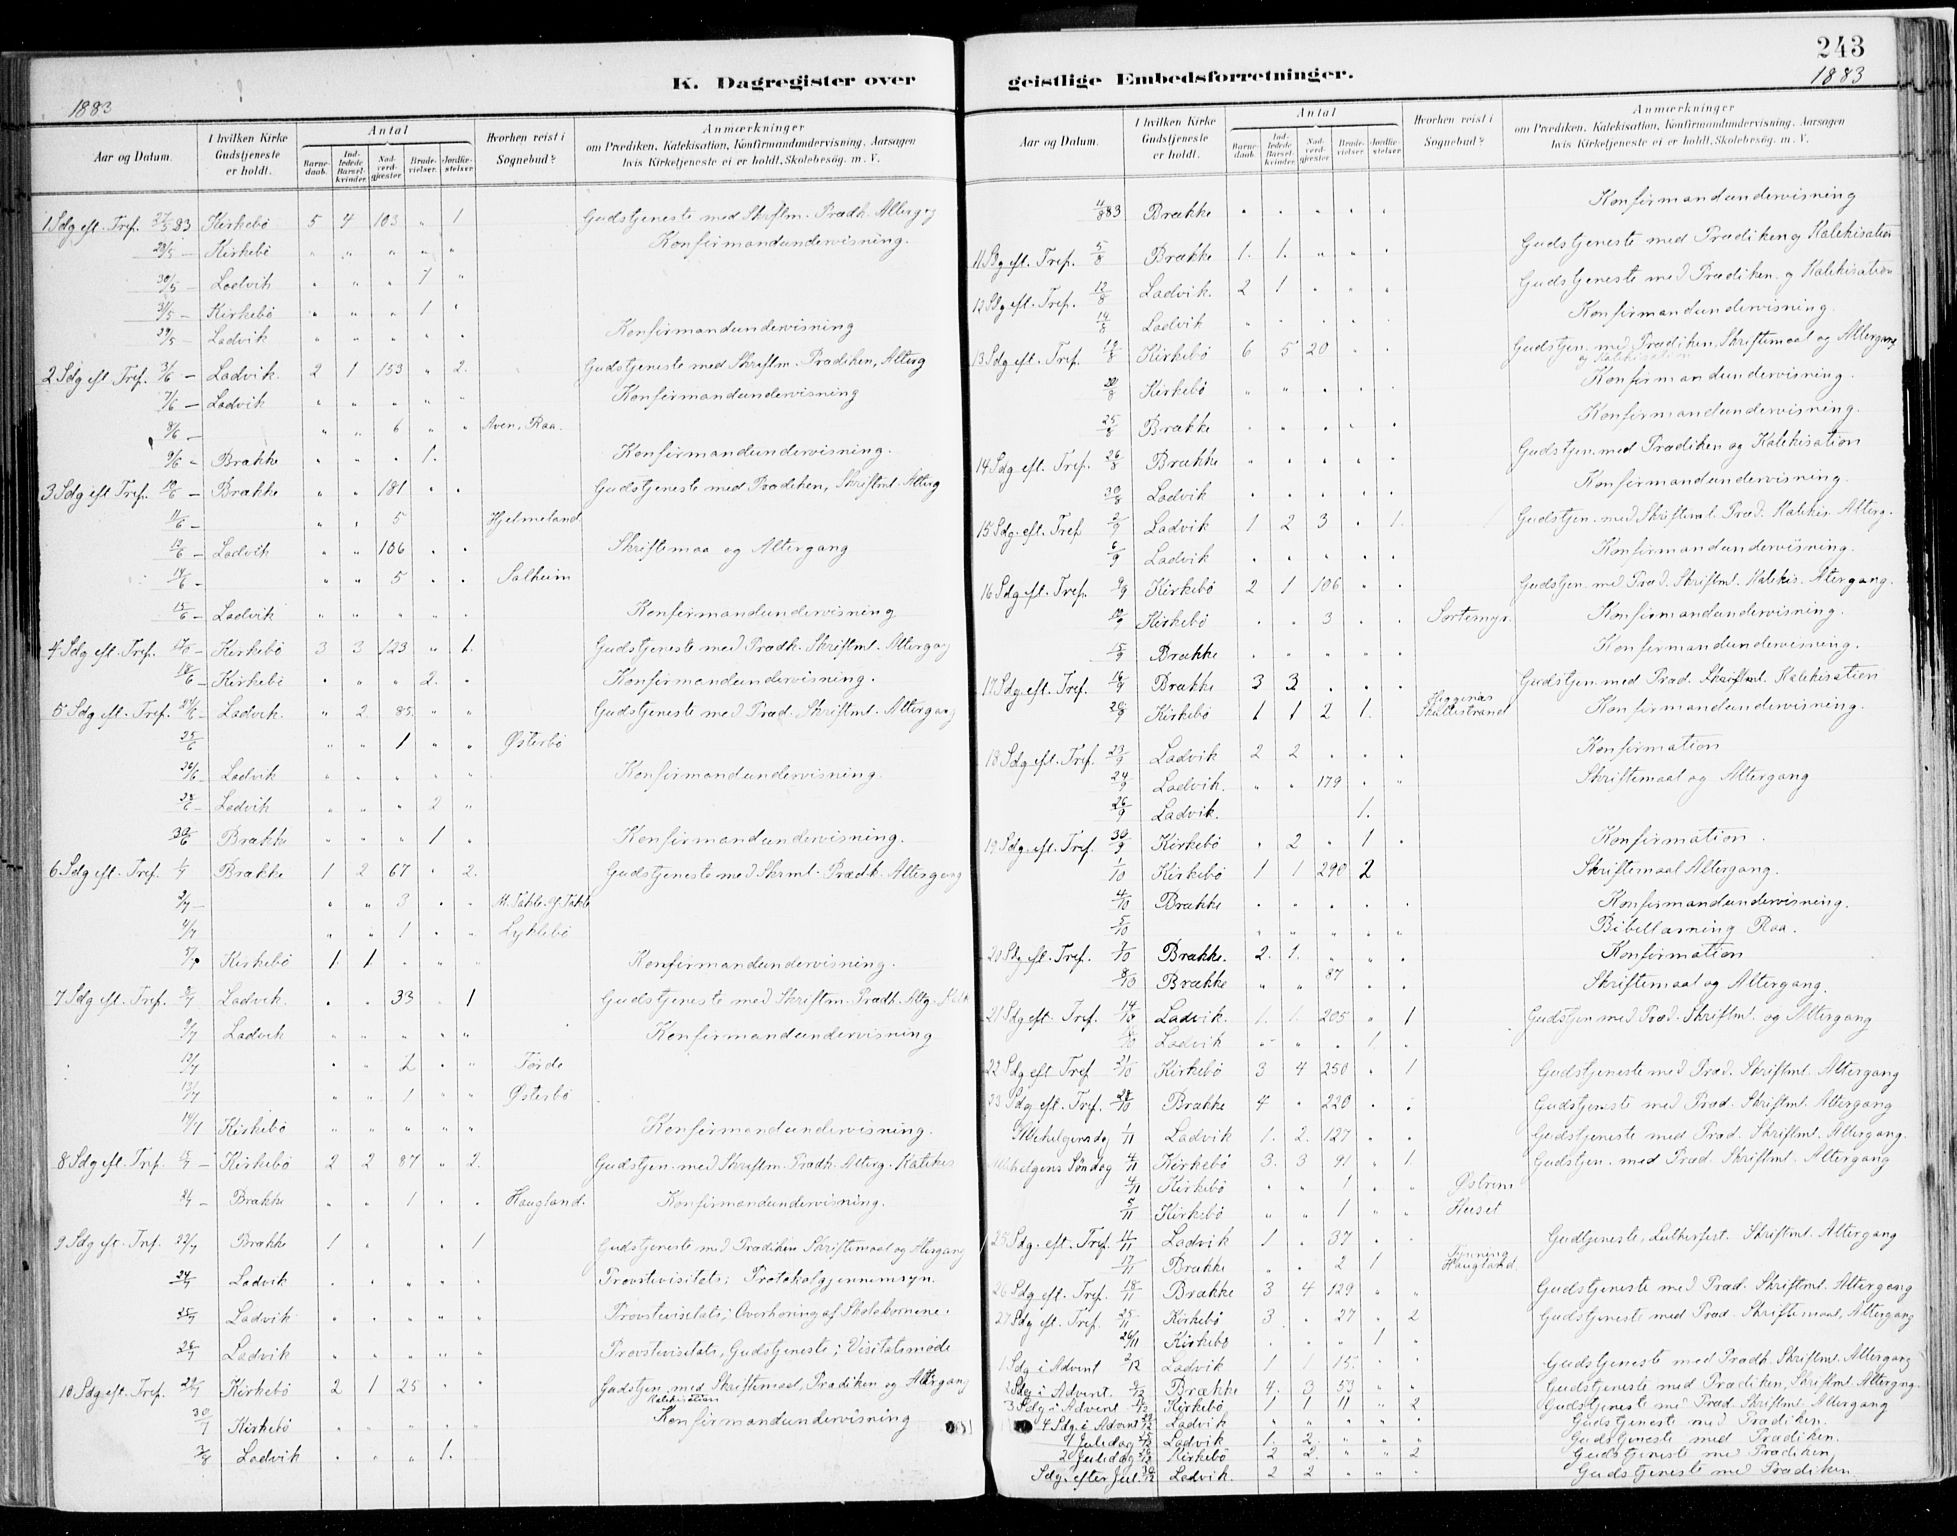 243
K. Dagregister over geistlige Embedsforretninger.
1883
1883
Aar og Datum. | I hvilken Kirke Gudstjeneste er holdt. | Antal | Barnedaab. | Indledede Barselkvinder. | Nadverdgjæster | Brudevielser. | Jordfæstelser. | Hvorhen reist i Sognebud? | Anmærkninger om Prædiken, Katekisation, Konfirmandundervisning, Aarsagen hvis Kirketjeneste ei er holdt, Skolebesög. m. V.
1 Sdg eft. Tref. 27/5 83 Kirkebö 5 4 103 " 1 Gudstjeneste med Skriftm. Prædk. Alterg
28/5 – Kirkebö " " " " " Konfirmandundervisning.
30/5 – Ladvik " " " 1 "
31/5 – Kirkebö " " " 1 "
29/5 – Ladvik " " " " " Konfirmandundervisning
2 Sdg eft. Tref. 3/6 – Ladvik. 2 1 153 " 2. Gudstjeneste med Skriftm. Prædiken, Alterg
7/6 – Ladvik " " " " " Konfirmandundervisning
8/6 – " " 6 " " Aven, Raa.
9/6 – Brække " " " 1. Konfirmandundervisning.
3 Sdg eft Tref. 10/6 – Brække " " 181 " " Gudstjeneste med Prædiken, Skriftml. Alterg
11/6 – " " 5 Hjelmeland
12/6 – Ladvik " " 106 " " Skriftemaa og Altergang
14/6 – " " 5 " " Salheim
15/6 – Ladvik " " " " " Konfirmandundervisning
4 Sdg eft. Tref. 17/6 – Kirkebö 3 3 123 " 1. Gudstjeneste med Prædk. Skriftml. Altergang
18/6 – Kirkebö " " " 2. " Konfirmandundervisning.
5 Sdg eft. Tref. 24/6 – Ladvik. " 2 85 " " Gudstjeneste med Præd. Skriftml. Altergang
25/6 " " 1 " " Østerbö
26/6 – Ladvik " " " " " Konfirmandundervisning.
28/6 – Ladvik " " " 2 "
30/6 Brække " " " 1 " Konfirmandundervisning.
6 Sdg eft. Tref. 1/7 Brække 1 2 67 " 2. Gudstjeneste med Skrml. Prædk. Altergang
2/7 – " " 3 " " M. Takle. Y. Takle
4/7 " " 1 " " Lyklebö
5/7 Kirkebö 1 1 " " " Konfirmandundervisning.
7 Sdg eft. Tref. 8/7 Ladvik. " " 33 " 1 Gudstjeneste med Skriftm. Prædk. Altg.
9/7 Ladvik " " " " " Konfirmandundervisning
12/7 " " 2 " " Förde
13/7 " " 1 " " Østerbö
14/7 Kirkebö " " " " " Konfirmandundervisning.
8 Sdg eft. Tref. 15/7 – Kirkebö 2 2 87 " 2. Gudstjen. med Skriftm. Prædk. Alterg. Katekis
– Brække " " 1 " " Haugland. Konfirmandundervisning.
9 Sdg eft. Tref. 22/7 Brække 1 " " " 1 Gudstjeneste med Prædiken Skriftemaal og Altergang
24/7 Ladvik " " " " " Provstevisitats; Protokolgjennemsyn.
25/7 Ladvik " " " " " Provstevisitats; Overhöring af Skolebörnene.
26/7 Ladvik " " " " " Provstevisitats, Gudstjeneste; Visitatsmöde
10 Sdg eft. Tref. 29/7 Kirkebö 2 1 25 " " Gudstjen. med Skriftemaal, Prædiken og Altergang
Katekisation
30/7 Kirkebö " " " " " Konfirmandundervisning
2/8 Ladvik " " " 1.
Aar og Datum. | I hvilken Kirke Gudstjeneste er holdt. | Antal | Barnedaab. | Indledede Barselkvinder. | Nadverdgjæster | Brudevielser. | Jordfæstelser. | Hvorhen reist i Sognebud? | Anmærkninger om Prædiken, Katekisation, Konfirmandundervisning, Aarsagen hvis Kirketjeneste ei er holdt, Skolebesög. m. V.
4/8 83 Brække " " " " " Konfirmandundervisning
11 Sdg eft. Tref. 5/8 Brække 1. 1. " " " Gudstjeneste med Prædiken og Katekisation
12 Sdg eft. Tref. 12/8 Ladvik. 2 1 " " " Gudstjeneste med Prædiken og Katekisation
14/8 Ladvik " " " " " Konfirmandundervisning.
13 Sdg eft. Tref. 19/8 Kirkebö 6 5 20 " " Gudstjen. med Prædiken, Skriftemaal og Altergang
og Katekisation
20/8 Kirkebö " " " " " Konfirmandundervisning.
25/8 Brække " " " " " Konfirmandundervisning.
14 Sdg eft. Tref. 26/8 Brække " " " " " Gudstjen. med Prædiken og Katekisation
30/8 Ladvik " " " " " Konfirmandundervisning.
15 Sdg. eft. Tref 2/9 Ladvik 1 2 3 " 1. Gudstjen. med Skriftemal. Præd. Katekis. Alterg.
6/9 Ladvik " " " " " Konfirmandundervisning.
16 Sdg. eft. Tref. 9/9 Kirkebö 2 1 106 " " Gudstjen. med Præd. Skriftml. Katekis. Altergang.
10/9 Kirkebö " " 3 " " Sortemyr. Konfirmandundervisning.
15/9 Brække " " " " " Konfirmandundervisning.
17 Sdg. eft. Tref. 16/9 Brække 3 3 " " " Gudstjen. med Præd. Skriftml. Katekisation
20/9 Kirkebö 1 1 2 1. Skallestrand Konfirmandundervisning.
18 Sdg. eft. Tref. 23/9 Ladvik 2 2 " " " Konfirmation
24/9 Ladvik. " " 179 " " Skriftemaal og Altergang
26/9 Ladvik. 1.
19 Sdg. eft. Tref. 30/9 Kirkebö " 2 " 1 " Konfirmation.
1/10 Kirkebö 1 1 290 2 Skriftemaal Altergang.
4/10 Brække " " " " " Konfirmandundervisning.
5/10 " " " " " Bibellæsning Raa.
20 Sdg eft. Tref. 7/10 Brække. 2. 1. " " " Konfirmation
8/10 Brække " " 87 " " Skriftemaal og Altergang.
21 Sdg eft. Tref. 14/10 Ladvik. 1. 1. 205 " 1 Gudstjen med Præd. Skriftml. og Altergang
Ladvik " " " 1. "
22 Sdg eft Tref 21/10 Kirkebö 3 4 250 " 1 Gudstjeneste med Præd. Skriftml. Altergang
23 Sdg. eft. Tref. 28/10 Brække 4 " 220 " " Gudstjeneste med Præd. Skriftml. Altergang
Allehelgensdag 1/11 Ladvik 1. 2. 127 " " Gudstjeneste med Præd. Skriftml. Altergang.
Allehelgens Söndag 4/11 Kirkebö 3. 3 91 " 1. Gudstjen. med Præd. Skriftml. Altergang
4/11 Kirkebö " " 1 " " Østrem
5/11 Kirkebö " " 1 " " Huset
25 Sdg. eft. Tref. 11/11 Ladvik 1 " 37 " " Gudtjeneste, Lutherfest. Skriftml. Altergang
17/11 Brække " " 2 1 Haugland
26 Sdg. eft. Tref. 18/11 Brække 3 4 129 " " Gudstjeneste med Præd. Skriftml. Altergang
27 Sdg eft. Tref. 25/11 Kirkebö 3 " 27 " 2 Gudstjeneste med Præd. Skriftemaal, Altergang
26/11 Kirkebö " " " 1 "
1 Sdg i Advent 2/12 Ladvik 1 1 15. " " Gudstjeneste med Prædk. Skriftml. Altergang
2 Sdg i Advent. 9/12 Brække 4. 3 53 " " Gudstjeneste med Prædiken, Skriftml. Altergang.
3 Sdg i Advent Kirkebö 1 1 11 " 2 Gudstjeneste med Præd. Skriftml. Altergang
4 Sdg. i Advent Ladvik " " " " " Gudstjeneste med Prædiken.
1 Juledag 25/12 Ladvik 1. 2. " " " Gudstjeneste med Prædiken.
2 Juledag 26/12 Kirkebö 2 2 " " 2 Gudstjeneste med Prædiken
Sdg. efter Jul. 30/12 Ladvik. 2 2 " " " Gudstjeneste med Prædiken